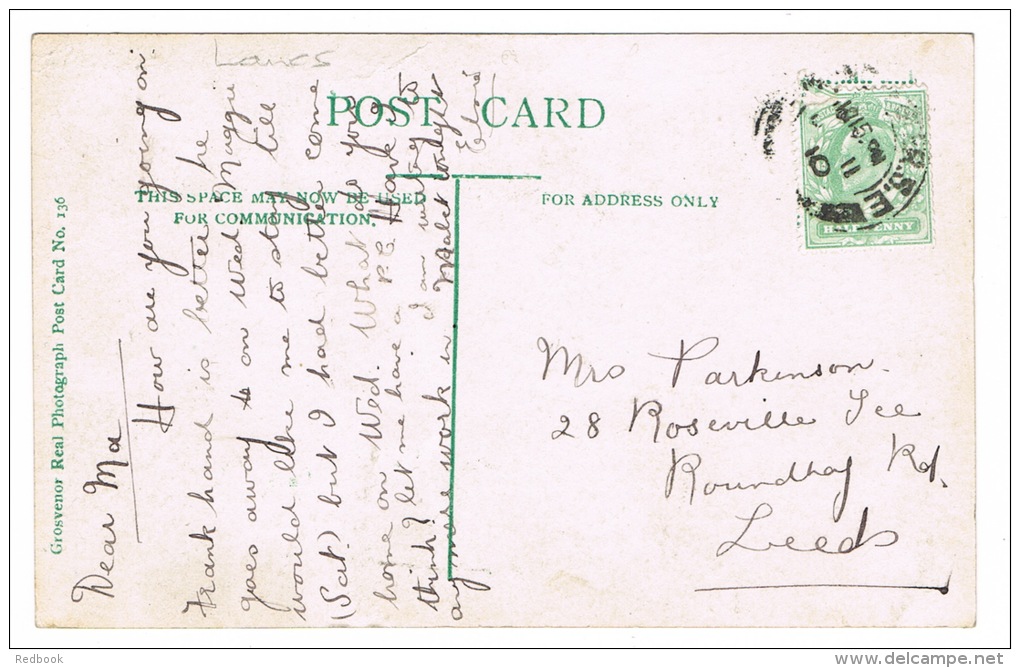 Lancs
POST CARD
THIS SPACE MAY NOW BE USED
FOR COMMUNICATION.
FOR ADDRESS ONLY
Grosvenor Real Photograph Post Card No. 136
Dear Ma
How are you going on
Frank hand is better he
goes away to on Wed. Maggie
would like me to stay till
(Sat.) but I had better come
home on Wed. What do you
think? let me have a P.C. Frank is
any more work in I am writing to
HALFPENNY
Mrs Parkinson.
28 Roseville Tce
Roundhay Rd.
Leeds
Redbook
delcampe.net